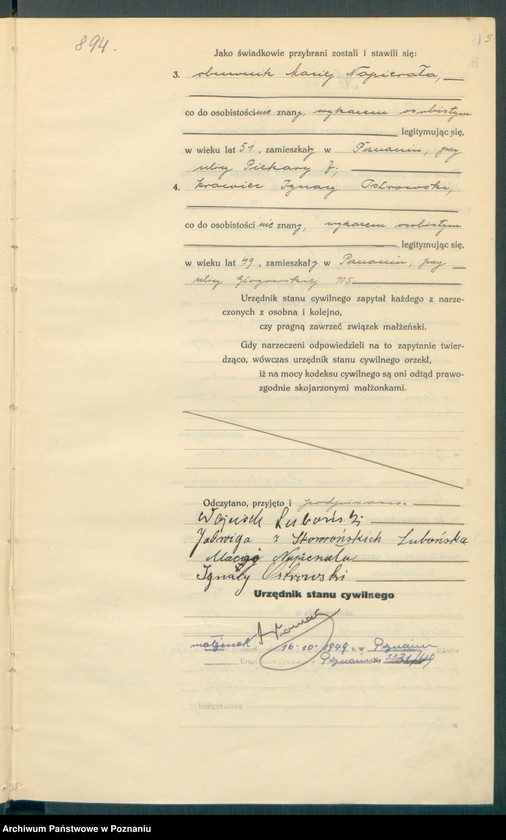 894.
5
Jako świadkowie przybrani zostali i stawili się:
3. obuwnik Maciej Napierała,
co do osobistości nie znany, wykazem osobistym
legitymując się,
w wieku lat 51, zamieszkały w Poznaniu, przy
ulicy Piekary 7,
4. krawiec Ignacy Ostrowski,
co do osobistości nie znany, wykazem osobistym
legitymując się,
w wieku lat 49, zamieszkały w Poznaniu, przy
ulicy Głogowskiej 105
Urzędnik stanu cywilnego zapytał każdego z narze-
czonych z osobna i kolejno,
czy pragną zawrzeć związek małżeński.
Gdy narzeczeni odpowiedzieli na to zapytanie twier-
dząco, wówczas urzędnik stanu cywilnego orzekł,
iż na mocy kodeksu cywilnego są oni odtąd prawo-
zgodnie skojarzonymi małżonkami.
Odczytano, przyjęto i podpisano.
Wojciech Luboński
Jadwiga z Lubońska
Maciej Napierała
Ignacy Ostrowski
Urzędnik stanu cywilnego
małżonek 16.10.1949 r. w Poznaniu
Poznaniu
Archiwum Państwowe w Poznaniu